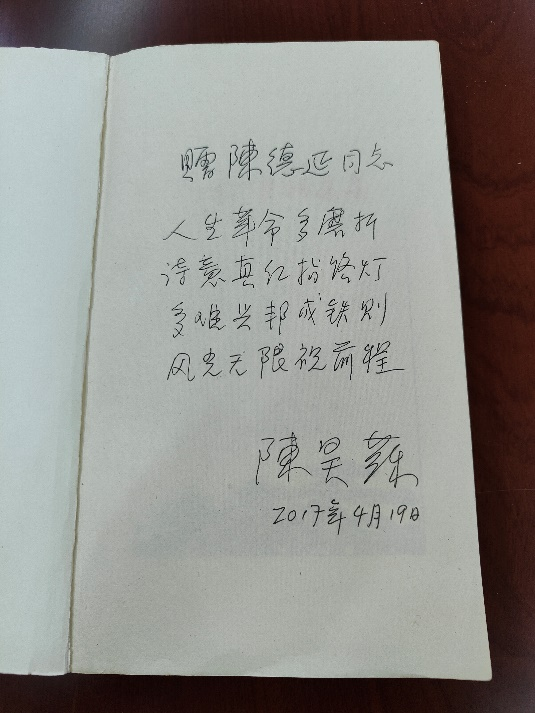 赠陳德延同志
人生革命多磨折
诗意真红指路灯
多难兴邦成铁则
风光无限祝前程
陳昊蘇
2017年4月19日